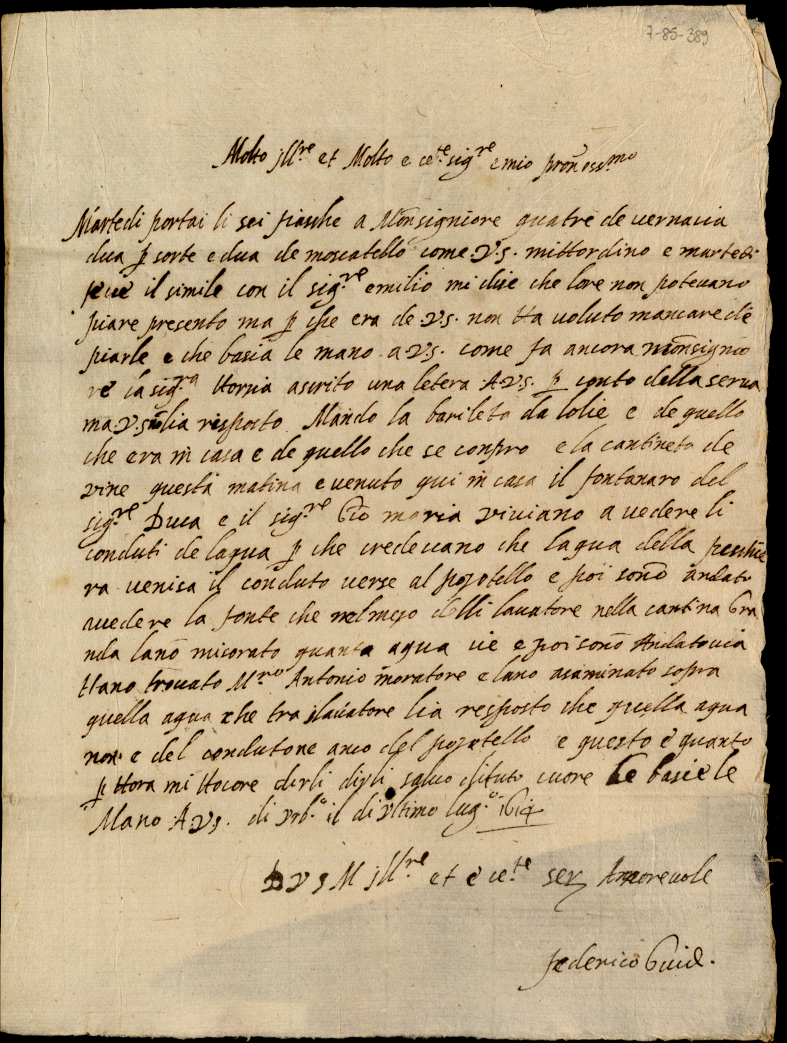 7-85-389
Molto jll.re et Molto e ce.te sig.re e mio pronoss.mo
Martedi portai li sei fiasche a Monsigniore quatre de vernacia
dua p sorte e dua de moscatello come V.S. mittordino e martedi
fece il simile con il sig.re emilio mi dise che lore non potevano
piare presento ma p che era de V.S. non Ha voluto mancare de
piarle e che basia le mano a V.S. come fa ancora monsignio
re la sig.ra ascrito una letera A V.S. p conto della serva
ma V.S. lia resposto Mando la barileta da lolie e de quello
che era in casa e de quello che se conpro e la cantineta de
vine questa matina e venuto qui in casa il fontanaro del
sig.re Duca e il sig.re Gio maria viviano a vedere li
conduti de laqua p che credevano che laqua della peschie
ra venisa il conduto verse al pozotello e poi sono andato
avedere la fonte che nel mezo delli lavatore nella cantina Gra
nda lano misorato quanta aqua vie e poi sono Andato via
Hano trovato M.ro Antonio moratore e lano asaminato sopra
quella aqua che tra slavatore lia resposto che quella aqua
non e del conduto ne anco del pozotello e questo e quanto
p Hora mi Hocore dirli salvo di tuto cuore le basie le
Mano A V.S. di Urb.o il di ultimo lug.o 1614
D V S M jll.re et e ce.te ser Amorevole
federico Guid.